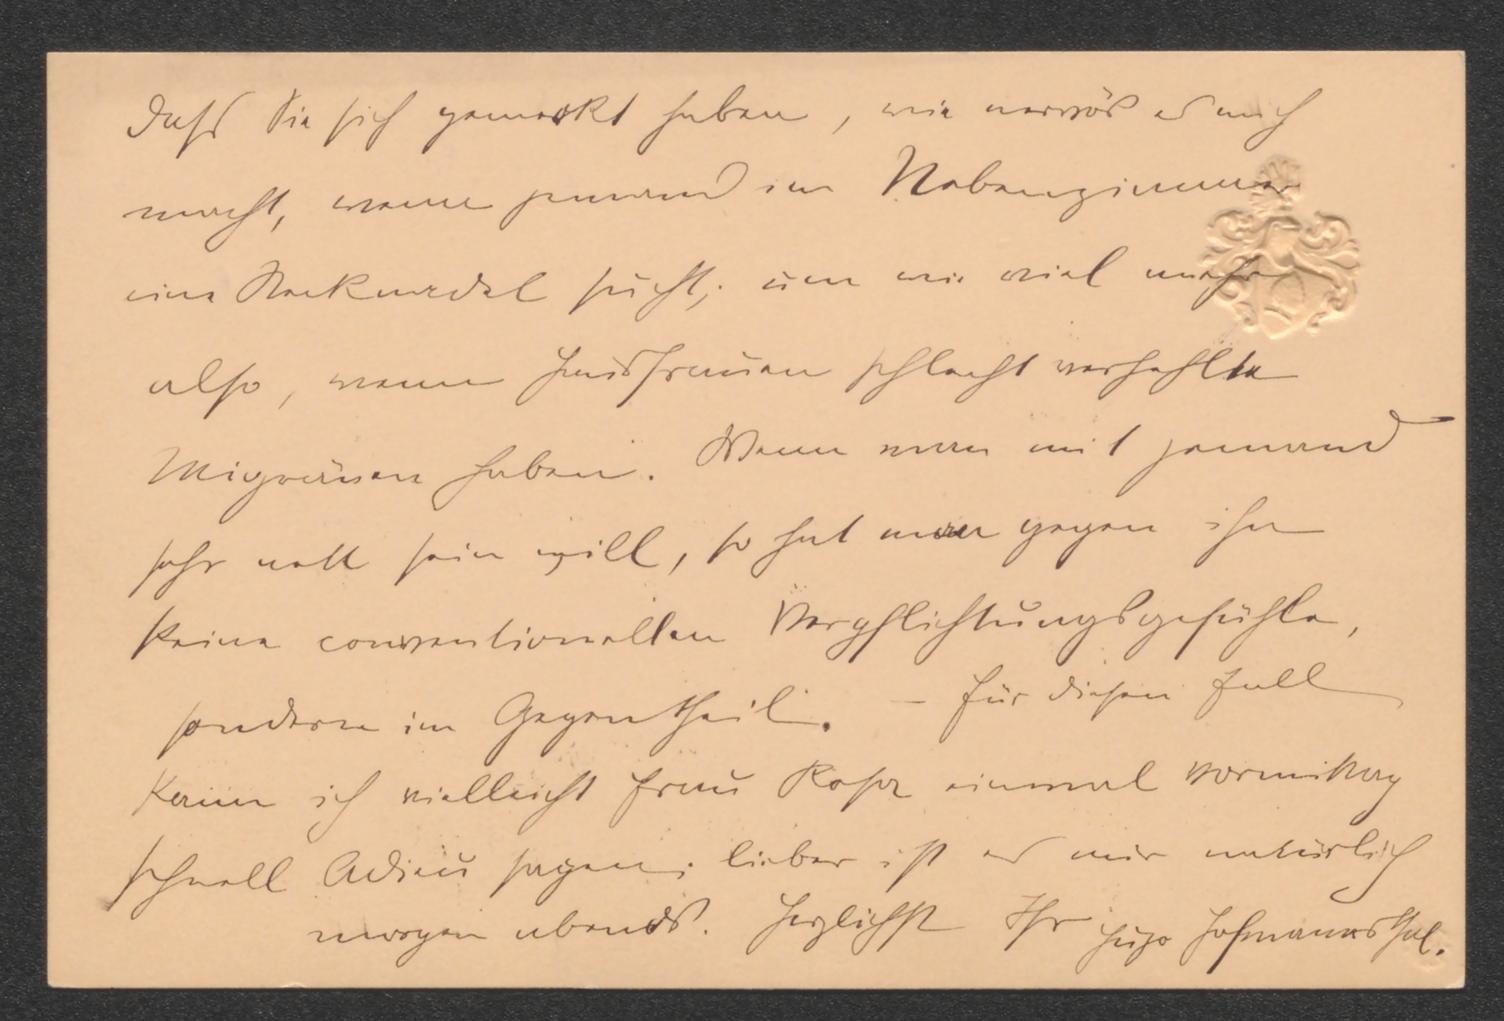 daſs Sie sich gemerkt haben, wie nervös es mich
macht, wenn jemand im Nebenzimmer
eine Stecknadel sucht; um wie viel mehr
also, wenn Hausfrauen schlecht verhehlte
Migränen haben. Wenn man mit jemand
sehr nett sein will, so hat man gegen ihn
keine conventionellen Verpflichtungsgefühle,
sondern im Gegentheil. – Für diesen Fall
kann ich vielleicht Frau Rosa einmal vormittag
schnell Adieu sagen; lieber ist es mir natürlich
morgen abends. Herzlichst Ihr Hugo Hofmannsthal.